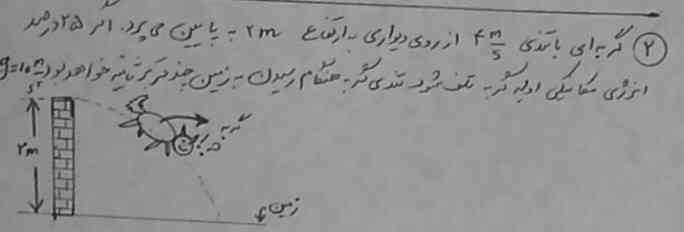 ۲ گربه‌ای با تندی ۴ m/s از روی دیواری به ارتفاع ۲m به پایین می‌پرد. اگر ۲۵ درصد
انرژی مکانیکی اولیه گربه تلف شود تندی گربه هنگام رسیدن به زمین چند متر بر ثانیه خواهد بود؟ g=۱۰ m/s²
گربه
۲m
زمین